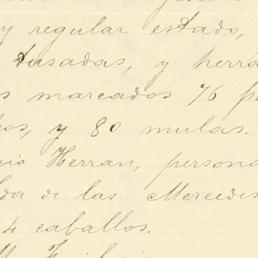 y regular estado,
tusadas, y herra
s marcados 76 p
os, y 80 mulas.
cio Herran, persona
da de las Mercedes
4 caballos.